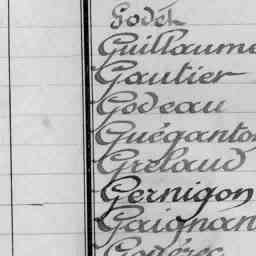 Godet
Guillaume
Gautier
Godeau
Guéganton
Grelaud
Gernigon
Gaignan